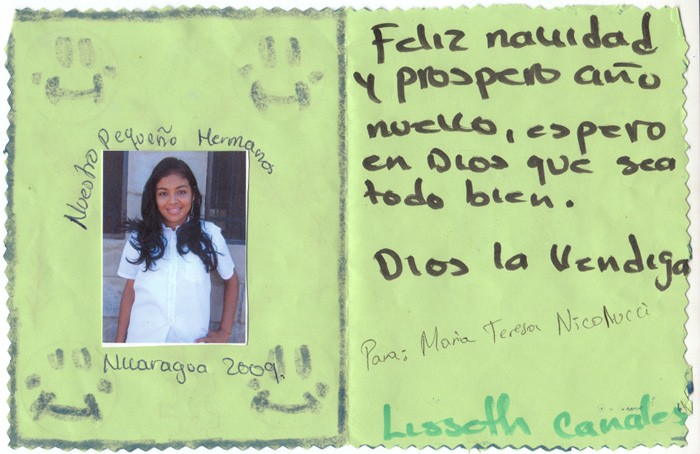 Nuestro Pequeño Hermanos
Nicaragua 2009.
Feliz navidad
y prospero año
nuevo, espero
en Dios que sea
todo bien.
Dios la Vendiga
Para: Maria Teresa Nicolucci
Lisseth Canales